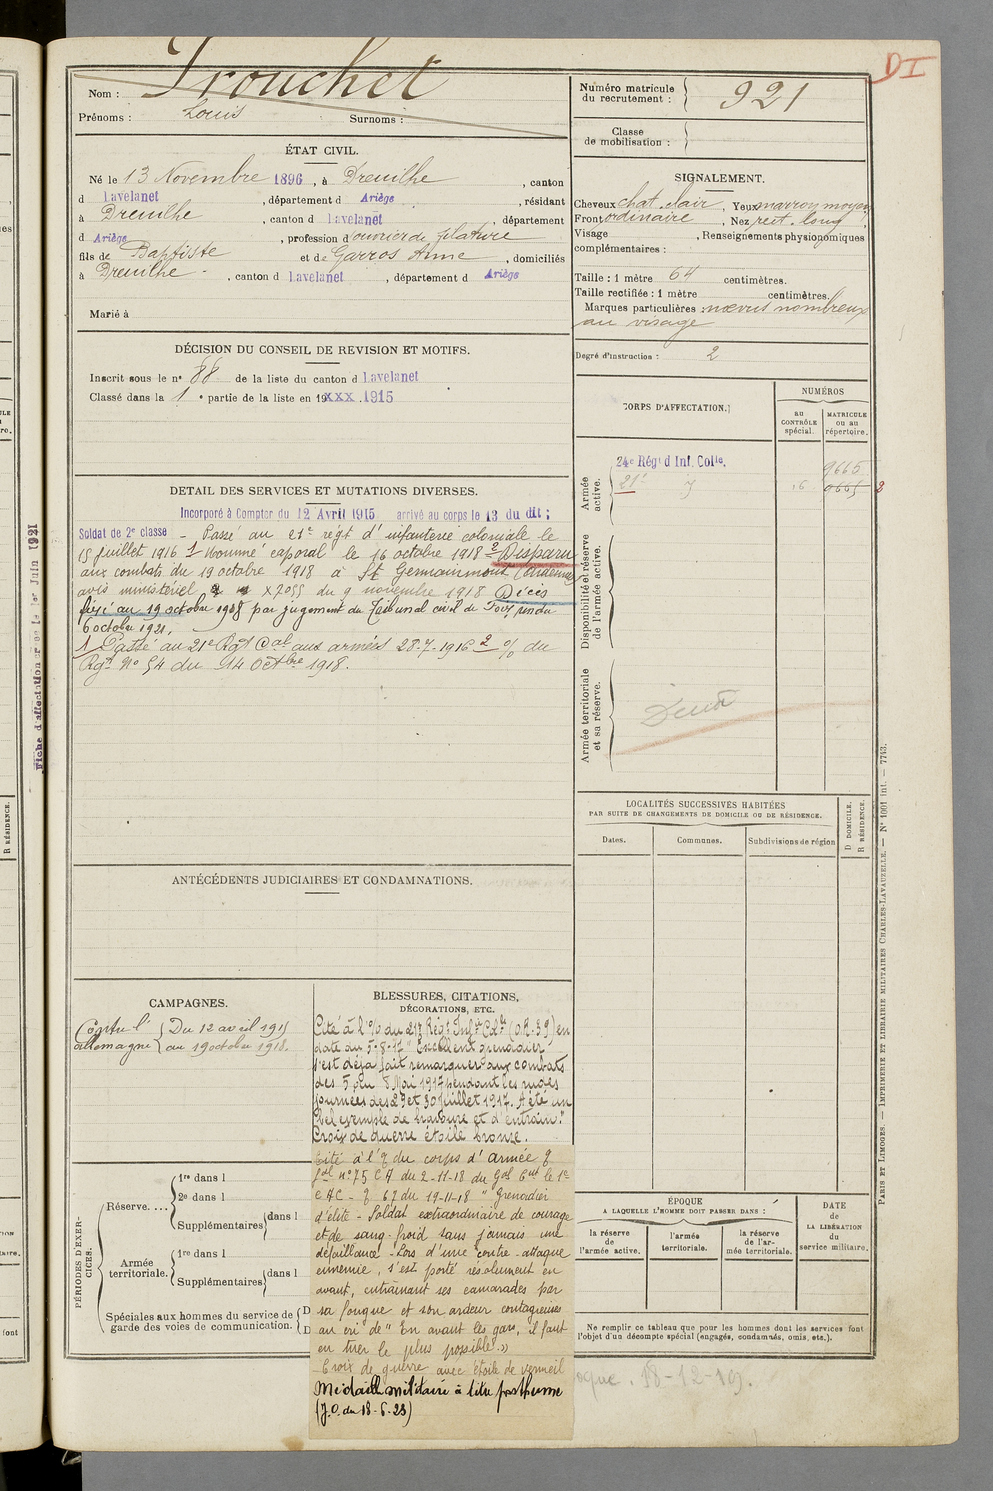 DI
Nom : Trouchet
Prénoms : Louis Surnoms :
Numéro matricule du recrutement : 921
Classe de mobilisation :
ÉTAT CIVIL.
Né le 13 Novembre 1896, à Dreuilhe, canton
d Lavelanet, département d Ariège, résidant
à Dreuilhe, canton d Lavelanet, département
d Ariège, profession d'ouvrier de filature
fils de Baptiste et de Garros Anne, domiciliés
à Dreuilhe, canton d Lavelanet, département d Ariège
Marié à
SIGNALEMENT.
Cheveux chat. clair, Yeux marron moyen
Front ordinaire, Nez rect. long
Visage , Renseignements physionomiques
complémentaires :
Taille : 1 mètre 64 centimètres.
Taille rectifiée : 1 mètre centimètres.
Marques particulières : nœvus nombreux
au visage
Degré d'instruction : 2
DÉCISION DU CONSEIL DE REVISION ET MOTIFS.
Inscrit sous le n° 88 de la liste du canton d Lavelanet
Classé dans la 1e partie de la liste en 19xxx.1915
CORPS D'AFFECTATION.
NUMÉROS
au CONTRÔLE spécial.
MATRICULE ou au répertoire.
Armée active.
24e Régt d Inf. Colle.
9665
21e
16
Disponibilité et réserve de l'armée active.
Armée territoriale et sa réserve.
DETAIL DES SERVICES ET MUTATIONS DIVERSES.
Incorporé à Compter du 12 Avril 1915 arrivé au corps le 13 du dit ;
Soldat de 2e classe - Passé au 21e régt d'infanterie coloniale le
15 juillet 1916 1 Nommé caporal le 16 octobre 1918 2 Disparu
aux combats du 19 octobre 1918 à St Germainmont (Ardennes)
avis ministériel x 7055 du 9 novembre 1918 Décès
fixé au 19 octobre 1918 par jugement du Tribunal civil de Foix rendu
6 octobre 1921.
1 Passé au 21e Rgt Cal aux armées 28-7-1916 2 % du
Rgt No 54 du 14 octbre 1918.
LOCALITÉS SUCCESSIVES HABITÉES
PAR SUITE DE CHANGEMENTS DE DOMICILE OU DE RÉSIDENCE.
Dates. Communes. Subdivisions de région
D DOMICILE. R RÉSIDENCE.
ANTÉCÉDENTS JUDICIAIRES ET CONDAMNATIONS.
CAMPAGNES.
Contre l' Du 12 avril 1915
allemagne au 19 octobre 1918.
BLESSURES, CITATIONS,
DÉCORATIONS, ETC.
Cité à l'% du 21e Régt Inf. Cole (O.R. 39) en
date du 5-8-17 "Excellent grenadier
s'est déjà fait remarquer aux combats
des 5 au 8 Mai 1917 pendant les rudes
journées des 29 et 30 Juillet 1917. A été un
bel exemple de bravoure et d'entrain."
Croix de guerre étoile bronze.
Cité à l'% du corps d'armée
n° 75 CA du 2-11-18 du Gal Ct le 1er
CAC - 67 du 19-11-18 "Grenadier
d'élite - Soldat extraordinaire de courage
et de sang-froid sans jamais une
défaillance - Lors d'une contre-attaque
ennemie, s'est porté résolument en
avant, entraînant ses camarades par
sa fougue et son ardeur contagieuses
au cri de "En avant les gars, il faut
en tuer le plus possible."
Croix de guerre avec étoile de vermeil
Médaille militaire à titre posthume
(J.O. du 18-6-23)
PÉRIODES D'EXERCICES.
Réserve.... 1re dans l
2e dans l
Supplémentaires dans l
Armée territoriale. 1re dans l
Supplémentaires dans l
Spéciales aux hommes du service de garde des voies de communication. D
D
ÉPOQUE
A LAQUELLE L'HOMME DOIT PASSER DANS :
la réserve de l'armée active.
l'armée territoriale.
la réserve de l'armée territoriale.
DATE de LA LIBÉRATION du service militaire.
Ne remplir ce tableau que pour les hommes dont les services font
l'objet d'un décompte spécial (engagés, condamnés, omis, etc.).
18-12-19.
PARIS ET LIMOGES. — IMPRIMERIE ET LIBRAIRIE MILITAIRES CHARLES-LAVAUZELLE. — N° 1001 int. — 7743.
R RÉSIDENCE.
font